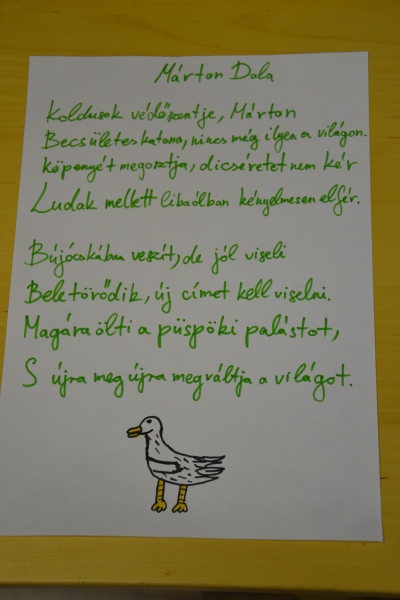 Márton Dala
Koldusok védőszentje, Márton
Becsületes katona, nincs még ilyen a világon.
Köpenyét megosztja, dicséretet nem kér
Ludak mellett libaólban kényelmesen elfér.
Bújócskában veszít, de jól viseli
Beletörődik, új címet kell viselni.
Magára ölti a püspöki palástot,
S újra meg újra megváltja a világot.